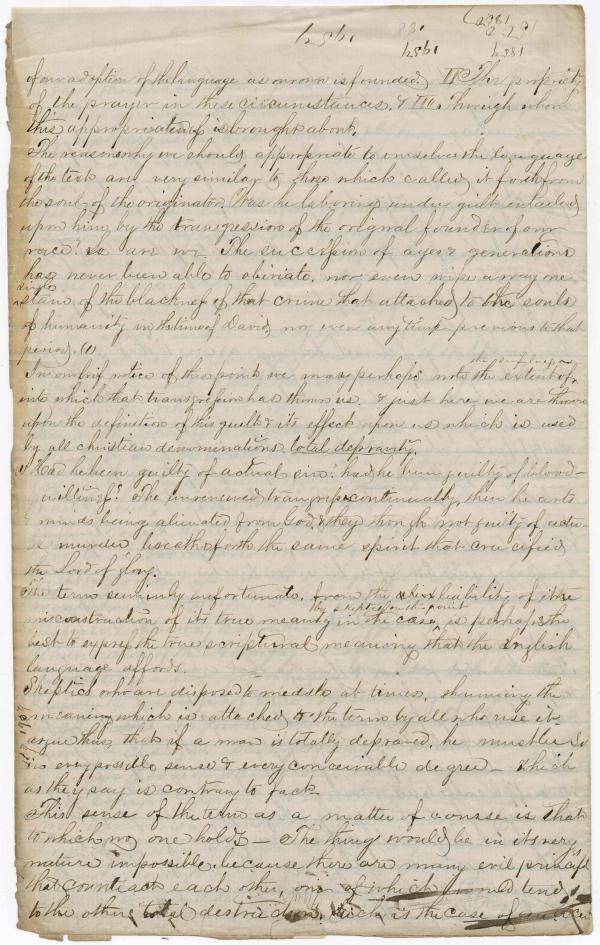 1881
1881
1954
1954
1881
of our adoption of the language as our own is founded, II The propriety
of the prayer in these circumstances & III. Through whom
this appropriateness is brought about.
The reasons why we should appropriate to ourselves the language
of the text are very similar to those which called it forth from
the soul of the originator. Was he laboring under guilt entailed
upon him by the transgression of the original founder of our
race? so are we. The succession of ages & generations
has never been able to obviate, nor even wipe away one
single
stain of the blackness of that crime that attached to the souls
of humanity in the time of David, nor even anything previous to that
period. (1)
In our brief notice of this point we may perhaps note the extent of
into which that transgression has thrown us. & just here we are thrown
upon the definition of this guilt & its effect upon us which is used
by all christian denominations total depravity.
Had he been guilty of actual sin: had he been guilty of blood-
guiltiness? The unrenewed transgress continually, their hearts
& minds being alienated from God, & they though not guilty of actu-
al murder breathe forth the same spirit that crucified
the Lord of glory.
The term seemingly unfortunate, from the liability of the
by skeptics on this point
misconstruction of its true meaning in the case, is perhaps the
best to express the true scriptural meaning that the English
language affords.
Skeptics who are disposed to meddle at times, shunning the
meaning which is attached to the term by all who use it
argue thus, that if a man is totally depraved, he must be so
in every possible sense & every conceivable degree - which
as they say is contrary to fact -
This sense of the term as a matter of course is that
to which no one holds - The thing would be in its very
nature impossible, because there are many evil principles
that counteract each other, one of which would tend
to the others total destruction. Such is the case of